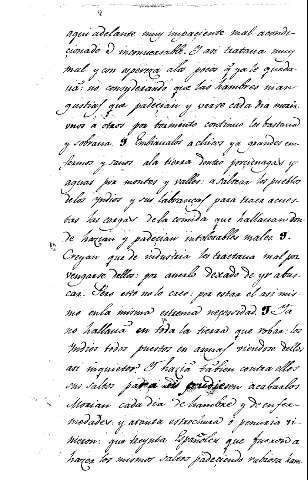 aqui adelante muy impaciente mal acondi-
cionado é inconuersable. I asi trataua muy
mal y con aspereza a los pocos q̃ ya le queda-
uã: no considerando que las hambres i an-
gustias que padecian y verse cada dia morir
vnos a otros por tormento continuo les bastaua
y sobraua. Embiaualos a chicos ya grandes en-
fermos y sanos ala tierra dentro por cienagas y
aguas por montes y valles: a robar los pueblos
delos Yndios y sus labranças para traer acues-
tas las cargas dela comida que hallauan don-
de hazian y padecian intolerables males.
Creyan que de industria los trataua mal por
vengarse dellos: por auerlo dexado de yr a bus-
car. Pero esto no lo creo: por estar el asi mis-
mo en la misma estrema necesidad. Ya
no hallauã en toda la tierra que robar: los
Yndios todos puestos en armas viendose dellos
asi inquietos. I haziã tãbien contra ellos
sus saltos para acabarlos
Morian cada dia de hambre y de enfer-
medades: y a tanta estrechura è penuria vi-
nieron: que treynta Españoles que fueron a
hazer los mismos saltos padeciendo rabiosa ham